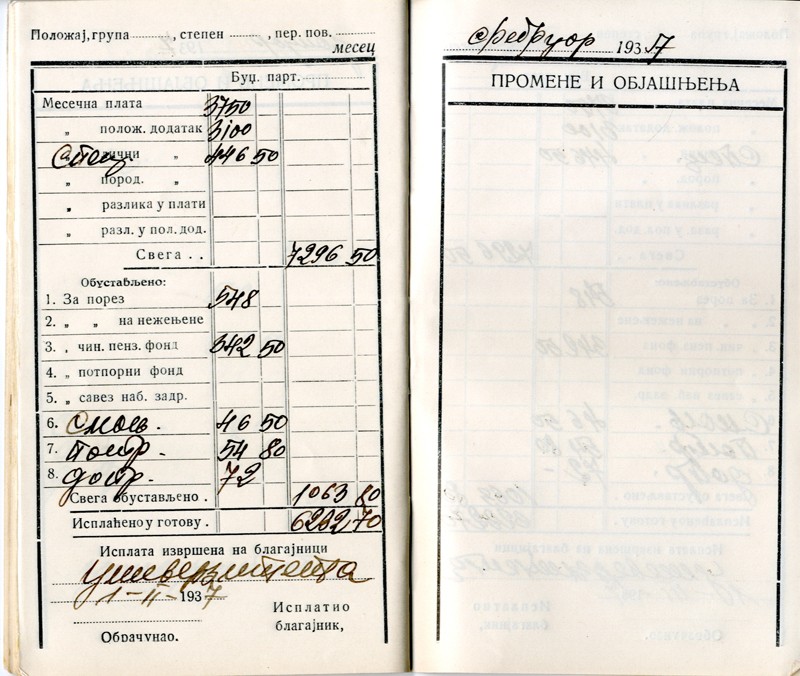 Положај, група , степен , пер. пов.
месец
Буџ. парт.
Месечна плата 3750
„ полож. додатак 3100
„ лични „ 446 50
„ пород. „
„ разлика у плати
„ разл. у пол. дод.
Свега . . 7296 50
Обустављено:
1. За порез 548
2. „ „ на нежењене
3. „ чин. пенз. фонд 342 50
4. „ потпорни фонд
5. „ савез наб. задр.
6. 46 50
7. 54 80
8. 72
Свега обустављено . 1063 80
Исплаћено у готову . 6232 70
Исплата извршена на благајници
Универзитета
1-II- 1937
Исплатио
благајник,
Обрачунао.
фебруар 1937
ПРОМЕНЕ И ОБЈАШЊЕЊА